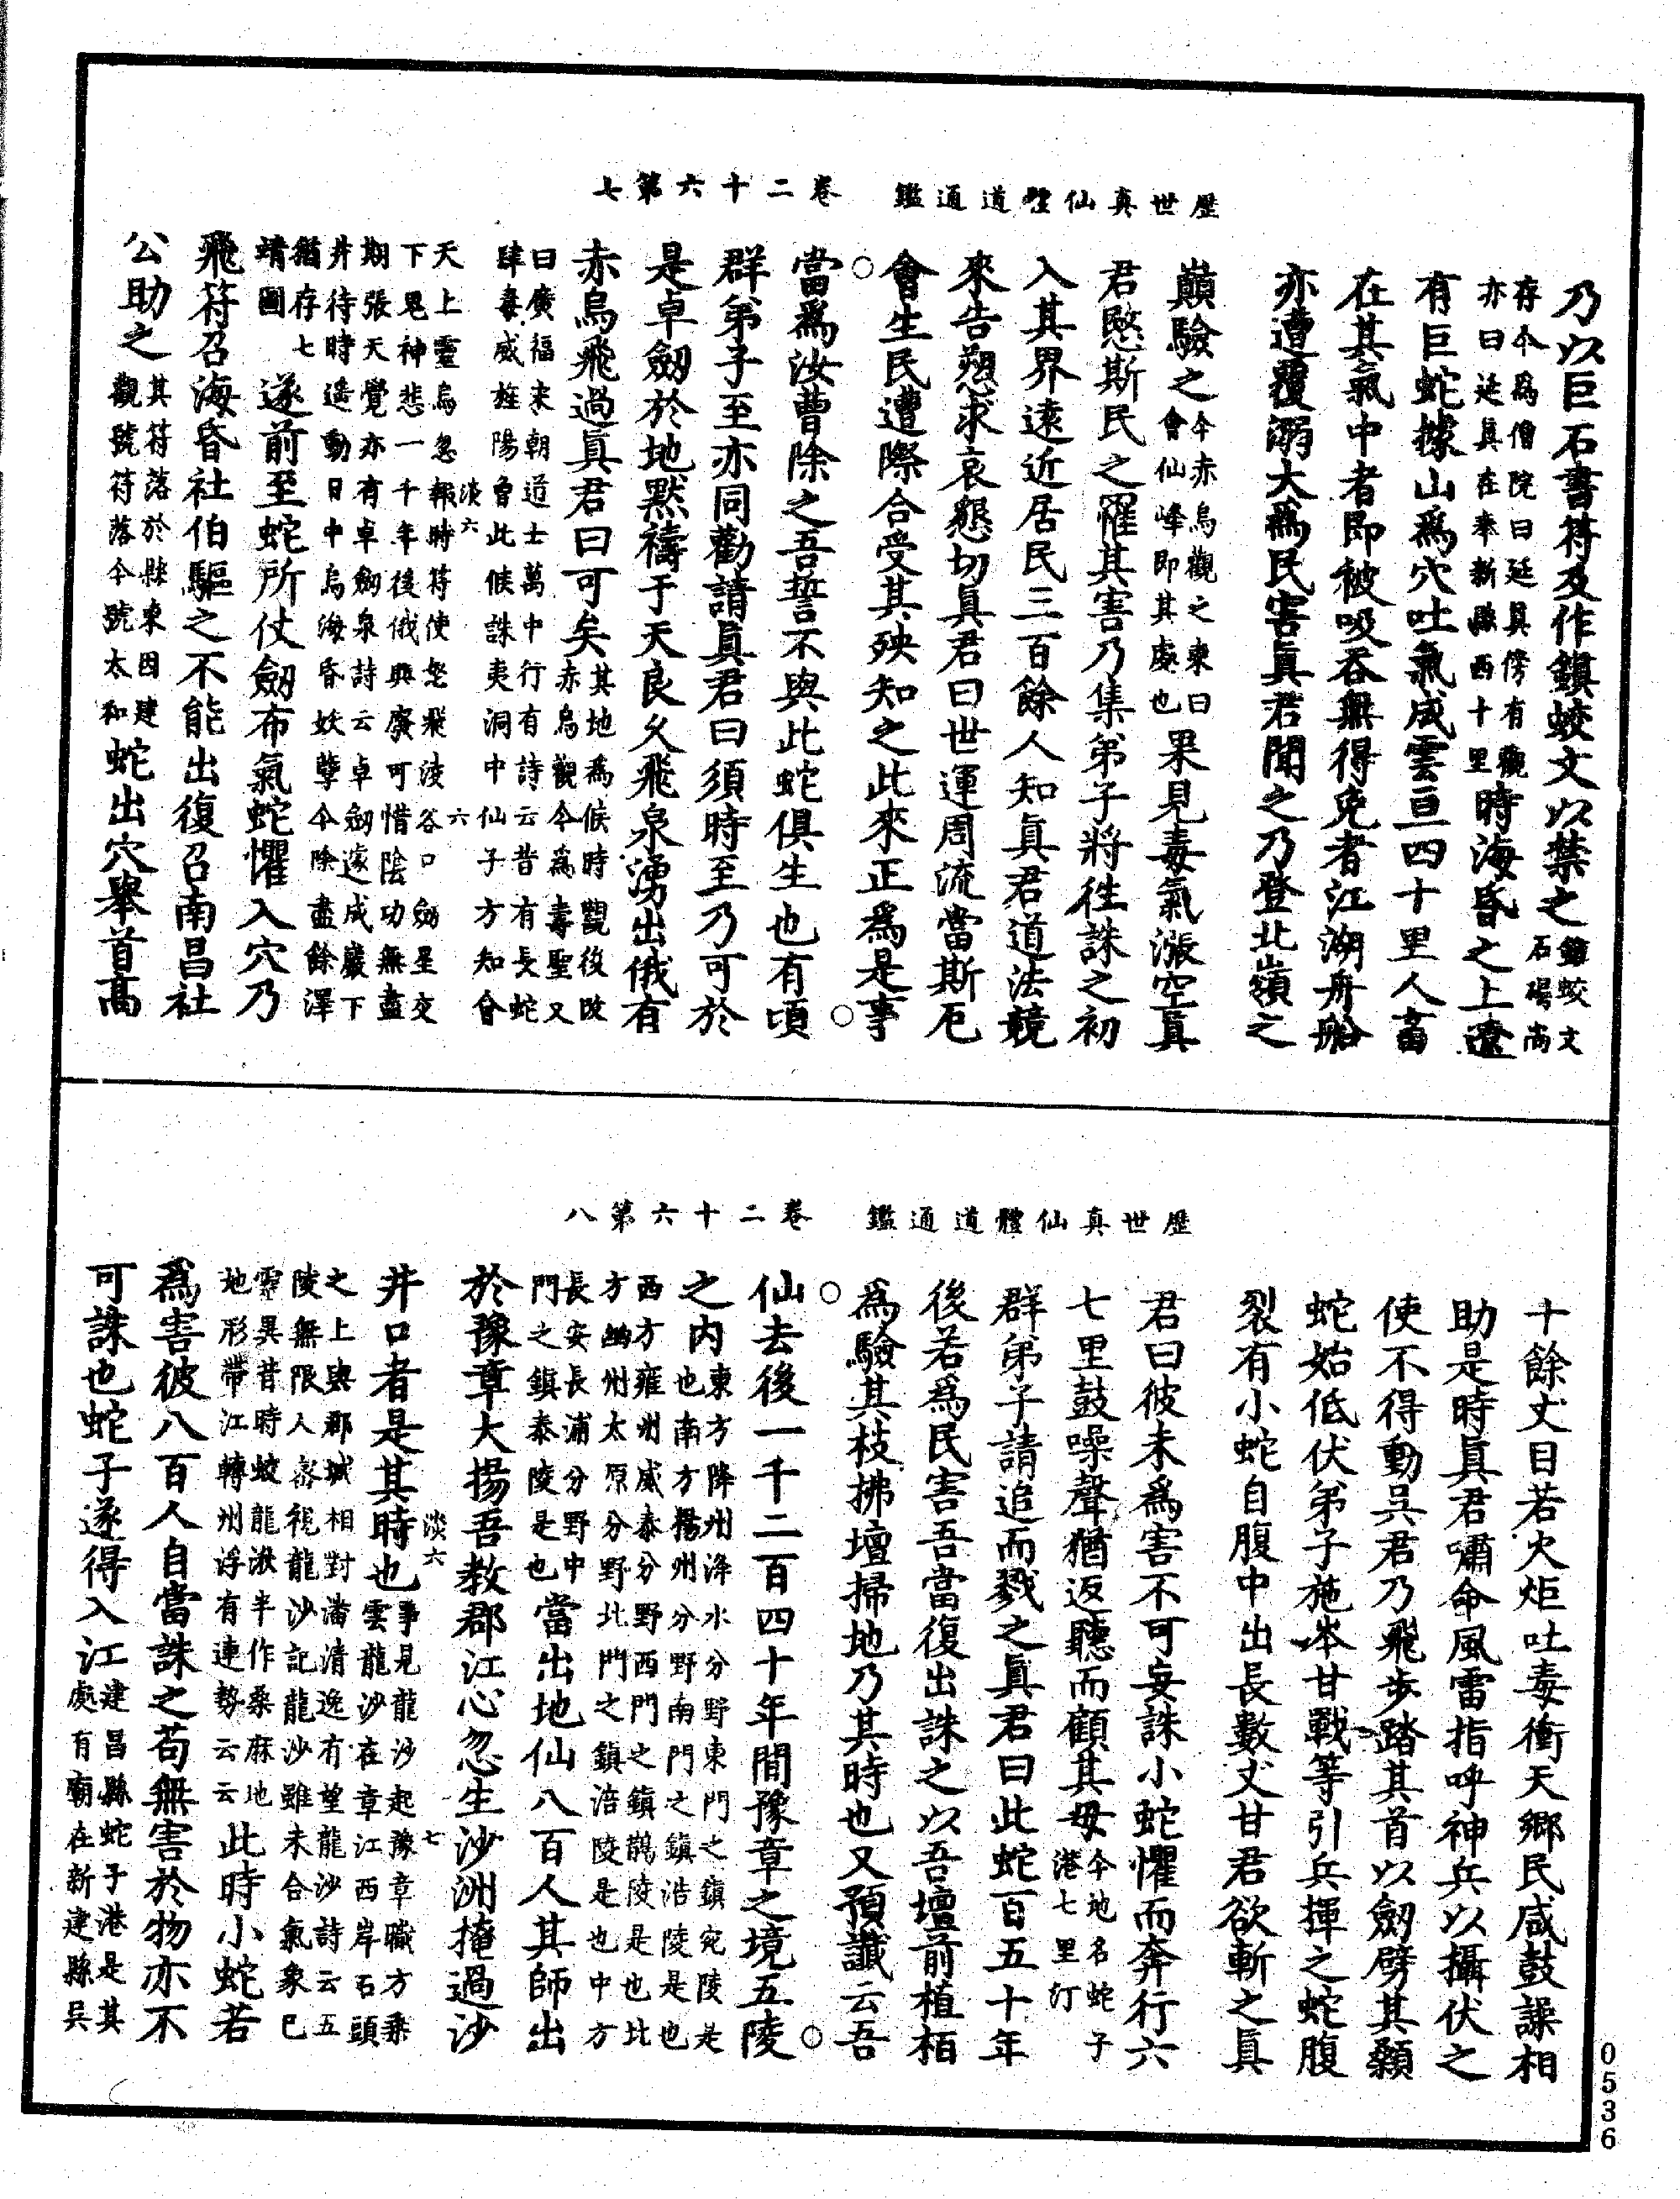 歷世真仙體道通鑑　卷二十六第七
乃以巨石書符及作鎮蛟文以禁之鎮蛟文石碣尚
存今爲僧院曰延真傍有觀亦曰延真在奉新縣西十里時海昏之上遼
有巨蛇據山爲穴吐氣成雲亘四十里人畜
在其氣中者即被吸吞無得免者江湖舟船
亦遭覆溺大爲民害真君聞之乃登北嶺之
巔驗之今赤烏觀之東曰會仙峰即其處也果見毒氣漲空真
君愍斯民之罹其害乃集弟子將往誅之初
入其界遠近居民三百餘人知真君道法競
來告愬求哀懇切真君曰世運周流當斯厄
會生民遭際合受其殃知之此來正爲是事
當爲汝曹除之吾誓不與此蛇俱生也有頃
群弟子至亦同勸請真君曰須時至乃可於
是卓劒於地默禱于天良久飛泉湧出俄有
赤烏飛過真君曰可矣其地爲候時觀後改赤烏觀今爲壽聖又
曰廣福宋朝道士萬中行有詩云昔有長蛇肆毒威旌陽曾此候誅夷洞中仙子方知會
淡六　六
天上靈烏忽報時符使怒飛波谷口劒星交下鬼神悲一千年後俄興廢可惜陰功無盡
期張天覺亦有卓劒泉詩云卓劒遂成巖下井待時遥動日中烏海昏妖孽今除盡餘澤
猶存七靖圖遂前至蛇所仗劒布氣蛇懼入穴乃
飛符召海昏社伯驅之不能出復召南昌社
公助之其符落於縣東因建觀號符落今號太和蛇出穴舉首高
歷世真仙體道通鑑　卷二十六第八
十餘丈目若火炬吐毒衝天鄉民咸鼓譟相
助是時真君嘯命風雷指呼神兵以攝伏之
使不得動吳君乃飛步踏其首以劒劈其顙
蛇始低伏弟子施岑甘戰等引兵揮之蛇腹
裂有小蛇自腹中出長數丈甘君欲斬之真
君曰彼未爲害不可妄誅小蛇懼而奔行六
七里鼓噪聲猶返聽而顧其母今地名蛇子港七里汀
群弟子請追而戮之真君曰此蛇百五十年
後若爲民害吾當復出誅之以吾壇前植栢
爲驗其枝拂壇掃地乃其時也又預讖云吾
仙去後一千二百四十年間豫章之境五陵
之內東方降州洚水分野東門之鎮宛陵是也南方楊州分野南門之鎮浩陵是也
西方雍州咸泰分野西門之鎮鵲陵是也北方幽州太原分野北門之鎮涪陵是也中方
長安長浦分野中門之鎮泰陵是也當出地仙八百人其師出
於豫章大揚吾教郡江心忽生沙洲掩過沙
井口者是其時也事見龍沙起豫章職方乘雲龍沙在章江西岸石頭
淡六　七
之上與郡城相對潘清逸有望龍沙詩云五陵無限人密視龍沙記龍沙雖未合氣象已
靈異昔時蛟龍湫半作桑麻地地形帶江轉州浮有連勢云云此時小蛇若
爲害彼八百人自當誅之苟無害於物亦不
可誅也蛇子遂得入江建昌縣蛇子港是其處有廟在新建縣吳
0536